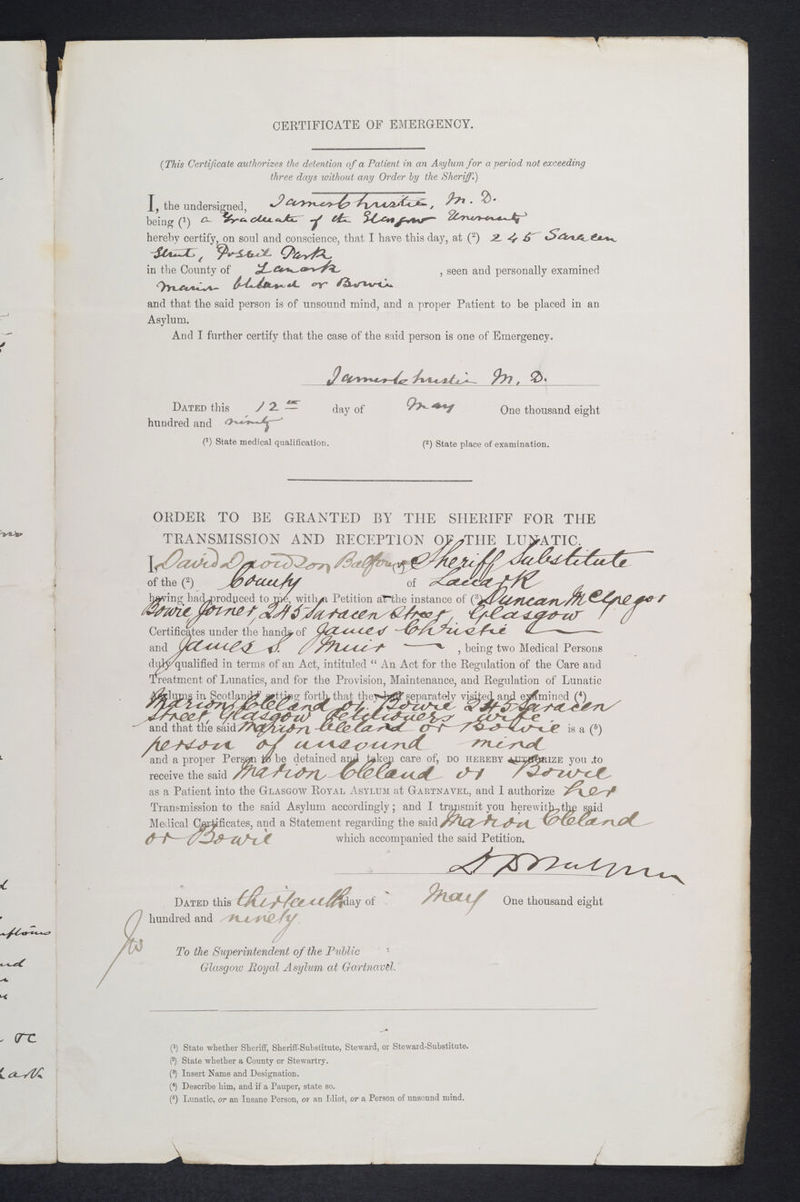 CERTIFICATE OF EMERGENCY.
(This Certificate authorizes the detention of a Patient in an Asylum for a period not exceeding
three days without any Order by the Sheriff.)
I, the undersigned, James Christie, M. D.
being (1) a Graduate of the Glasgow University
hereby certify, on soul and conscience, that I have this day, at (2) 245 Saracen
Street, Possil Park
in the County of Lanark , seen and personally examined
Marion Cleland or Bowie
and that the said person is of unsound mind, and a proper Patient to be placed in an
Asylum.
And I further certify that the case of the said person is one of Emergency.
James Christie M. D.
DATED this 12th day of May One thousand eight
hundred and ninety
(1) State medical qualification. (2) State place of examination.
ORDER TO BE GRANTED BY THE SHERIFF FOR THE
TRANSMISSION AND RECEPTION OF THE LUNATIC.
I, David Davidson Balfour Sheriff Substitute
of the (2) County of Lanark
having had produced to me, with a Petition at the instance of (3) Duncan McGregor
Bowie Joiner, 245 Saracen Street, Glasgow
Certificates under the hands of James Christie
and James S. Muir , being two Medical Persons
duly qualified in terms of an Act, intituled "An Act for the Regulation of the Care and
Treatment of Lunatics, and for the Provision, Maintenance, and Regulation of Lunatic
Asylums in Scotland," setting forth that they had separately visited and examined (4)
Marion Cleland or Bowie 245 Saracen
Street, Glasgow Petitioners wife
and that the said Marion Cleland or Bowie is a (5)
person of unsound mind
and a proper Person to be detained and taken care of, DO HEREBY AUTHORIZE you to
receive the said Marion Cleland or Bowie
as a Patient into the GLASGOW ROYAL ASYLUM at GARTNAVEL, and I authorize her
Transmission to the said Asylum accordingly; and I transmit you herewith the said
Medical Certificates, and a Statement regarding the said Marion Cleland
or Bowie which accompanied the said Petition.
DATED this thirteenth day of May One thousand eight
hundred and ninety
To the Superintendent of the Public
Glasgow Royal Asylum at Gartnavel.
(1) State whether Sheriff, Sheriff-Substitute, Steward, or Steward-Substitute.
(2) State whether a County or Stewartry.
(3) Insert Name and Designation.
(4) Describe him, and if a Pauper, state so.
(5) Lunatic, or an Insane Person, or an Idiot, or a Person of unsound mind.